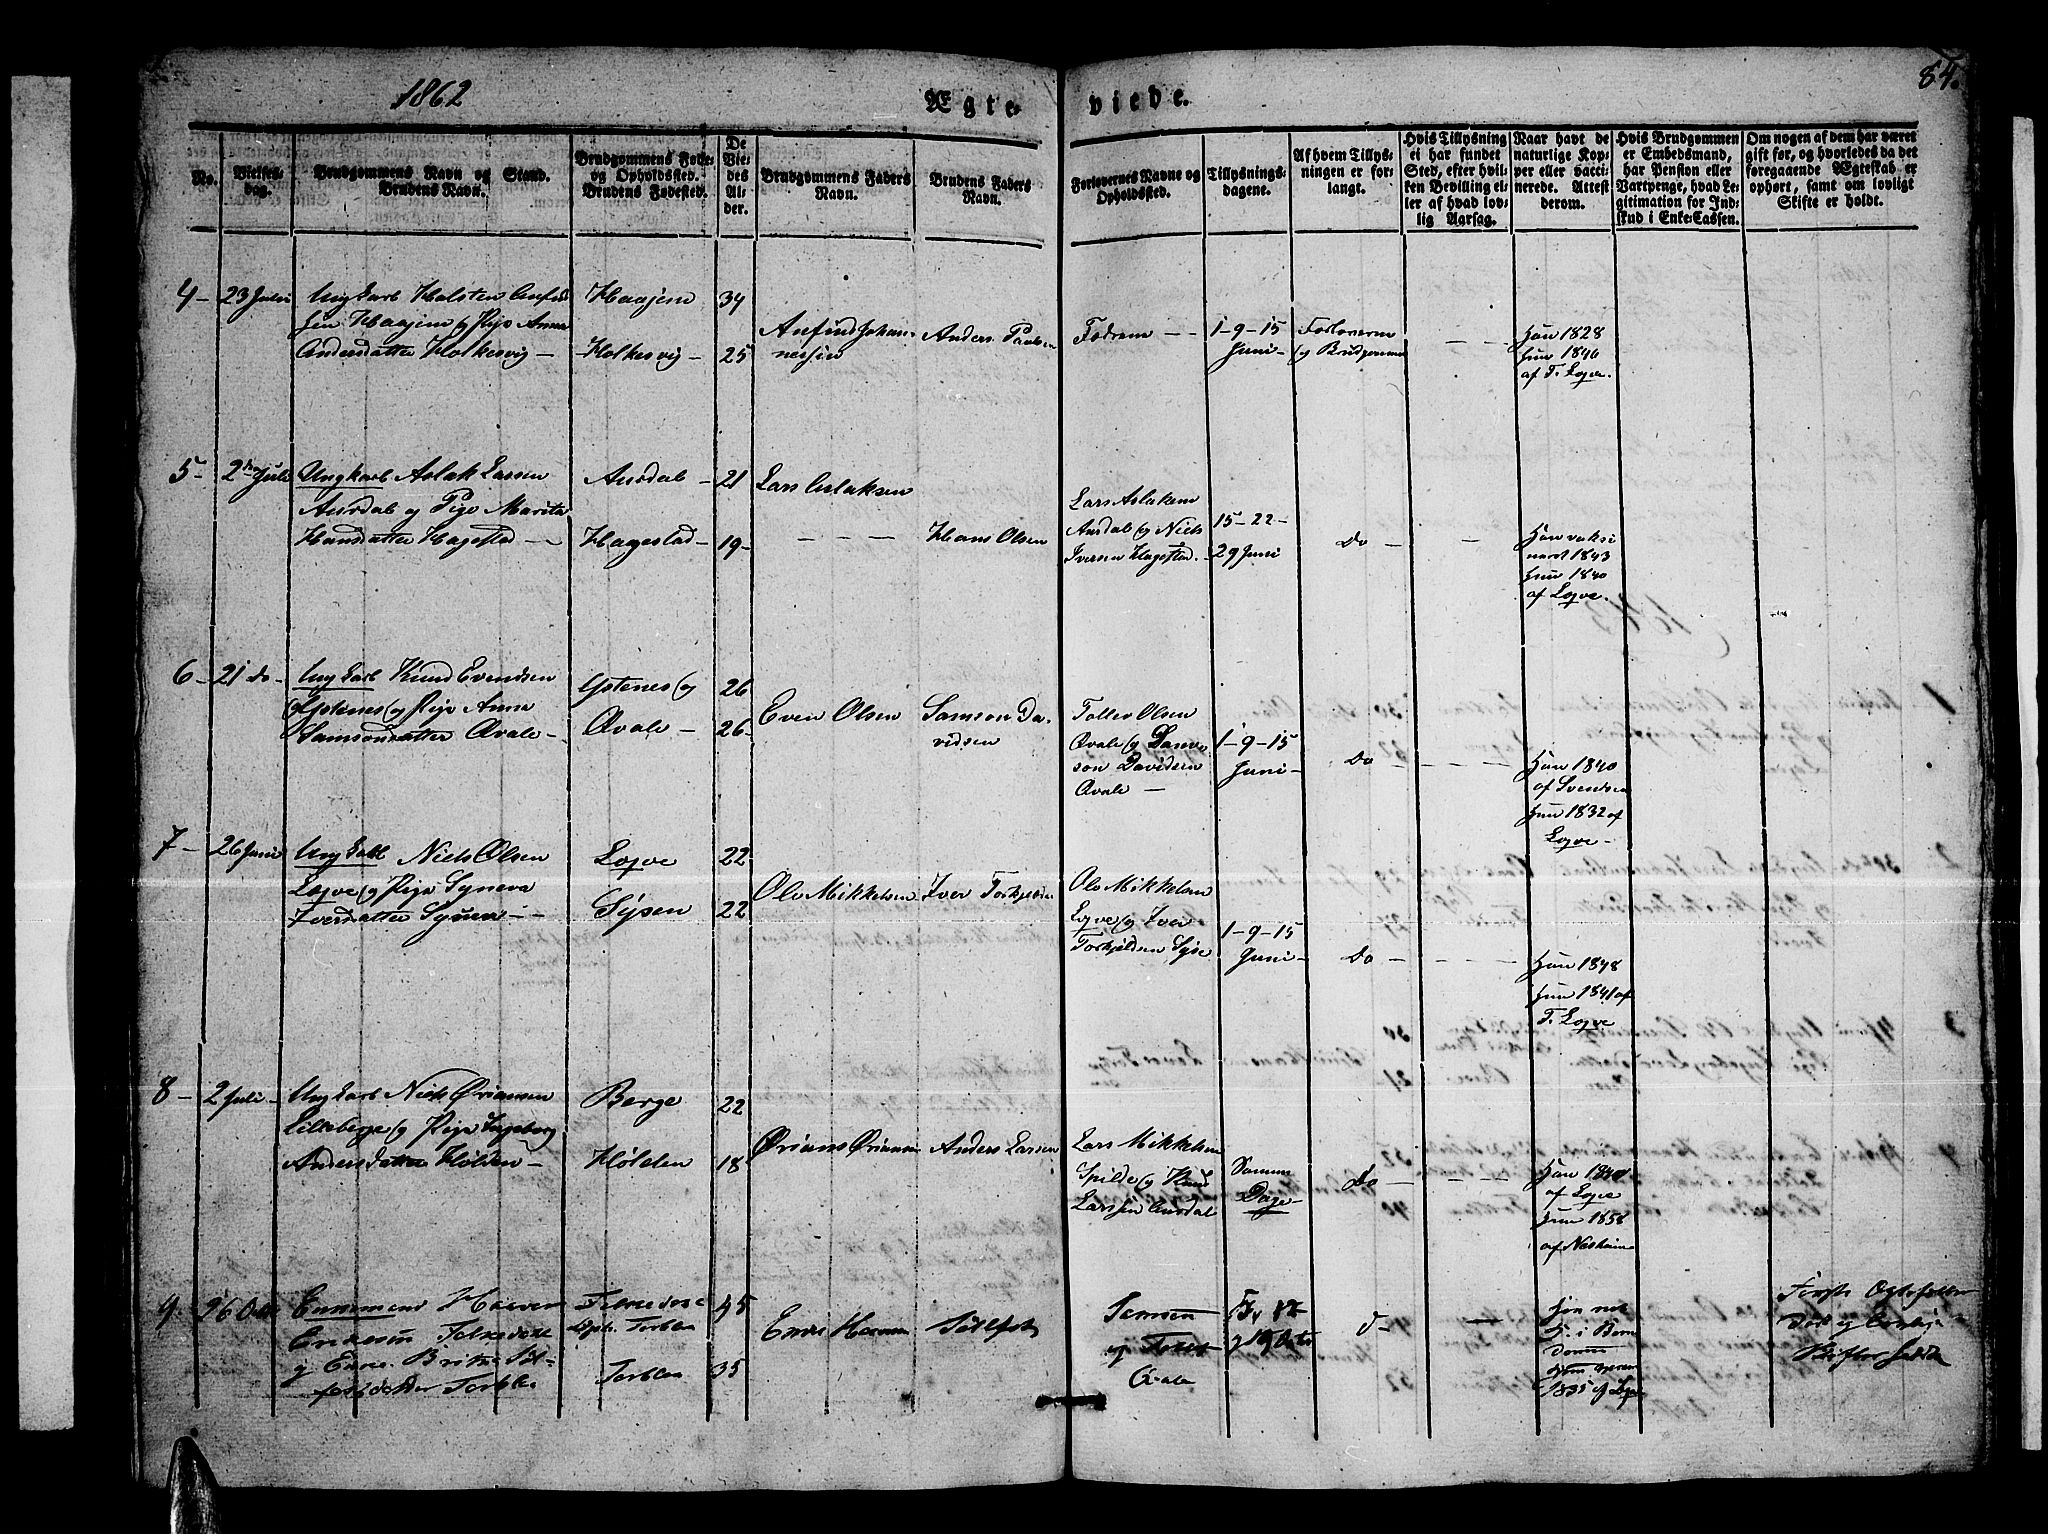 1862
Ægte
viede.
84.
No.
Vielses-
dag.
Brudgommens Navn og Stand.
Brudens Navn.
Brudgommens Føde-
og Opholdssted.
Brudens Fødested.
De
Vie-
des
Al-
der.
Brudgommens Faders
Navn.
Brudens Faders
Navn.
Forlovernes Navne og
Opholdssted.
Tillysnings-
dagene.
Af hvem Tillys-
ningen er for-
langt.
Hvis Tillysning
ei har fundet
Sted, efter hvil-
ken Bevilling el-
ler af hvad lov-
lig Aarsag.
Naar havt de
naturlige Kop-
per eller vacci-
nerede. Attest
derom.
Hvis Brudgommen
er Embedsmand,
har Pension eller
Vartpenge, hvad Le-
gitimation for Ind-
skud i Enke-Cassen.
Om nogen af dem har været
gift før, og hvorledes da det
foregaaende Ægteskab er
ophørt, samt om lovligt
Skifte er holdt.
4 - 23 Juli
Ungkarl Halsten Anfind
sen Haajem og Pige Anna
Andersdatter Holkesvig -
Haajem
Holkesvig -
34
25
Anfind Johan-
nessen
Anders Paulsen
Fædrene - -
1-9-15
Juni -
Forloverne
og Brudgommen
Han 1828
Hun 1840
af T. Lojve.
5 - 2 Juli
Ungkarl Aslak Larsen
Aursdal og Pige Marita
Hansdatter Hagestad -
Aursdal -
Hagestad -
21
19 -
Lars Aslaksen
Hans Olsen
Lars Aslaksen
Aursdal og Niels
Iversen Hagestad. -
15-22-
29 Juni
Do -
Han vaksi
neret 1843
Hun 1840
af Lojve.
6 - 21 do -
Ungkarl Knud Evendsen
Ystenes og Pige Anna
Samsonsdatter Qvale -
Ystenes og
Qvale -
26
26 -
Even Olsen
Samson Da-
vidsen
Tollev Olsen
Qvale og Sam
son Davidsen
Qvale -
1-9-15
Juni -
Do
Han 1840
af Svendsen
Hun 1832 af
Lojve -
7 - 26 Juni
Ungkarl Niels Olsen
Lojve og Pige Syneva
Iversdatter Sysen - -
Lojve
Sysen
22
22
Ole Mikkelsen
Iver Torkjelsen
Ole Mikkelsen
Lojve og Iver
Torkjeldsen Syse
1-9-15
Juni -
Do -
Han 1848
Hun 1841 af
T. Lojve
8 - 2 Juli -
Ungkarl Niels Ørjansen
Lilleberge og Pige Ingeborg
Andersdatter Hölden -
Berge
Hölden
22
18
Ørjans Ørjansen
Anders Larsen
Lars Mikkelsen
Spilde og Knud
Larssen Aursdal
Samme
Dage -
Do -
Han 1840
af Lojve
Hun 1858
af Nesheim
9 - 26 Octr
Enkemand Haaver
Ericksen Folkedal
og Enke Britha Söl-
festdatter Torblaa
Folkedal
Oph. Torblaa
Torblaa
45
35
Erick Haaver
Sölfest
Samson
og Tosten
Qvale
12
og 19 Octbr
Do
Han nat
K. i Barn-
dommen
Hun vaccin
1835 af Lojve
Første Ægtefæller
Død og Lovlig
Skifter holdt